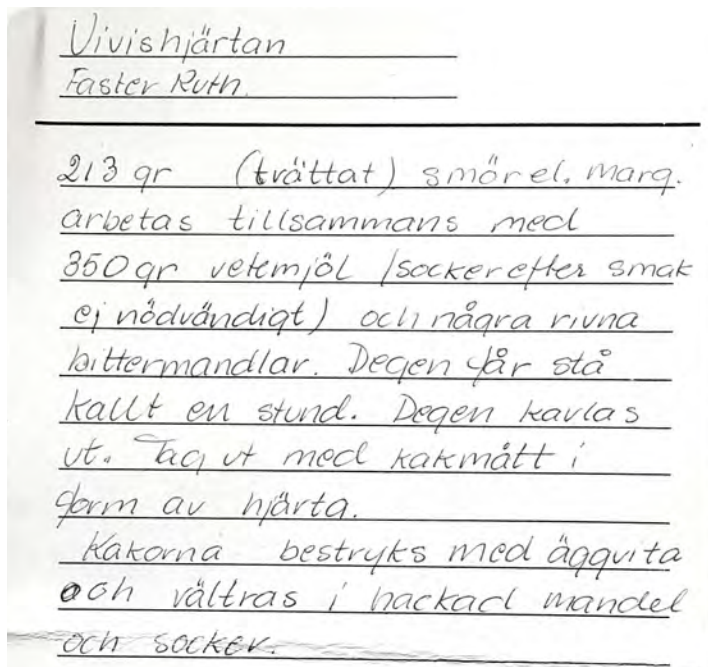 Vivishjärtan
Faster Ruth.
213 gr (tvättat) smör el. marg.
arbetas tillsammans med
350 gr vetemjöl (socker efter smak
ej nödvändigt) och några rivna
bittermandlar. Degen får stå
kallt en stund. Degen kavlas
ut. Tag ut med kakmått i
form av hjärta.
Kakorna bestryks med äggvita
och vältras i hackad mandel
och socker.